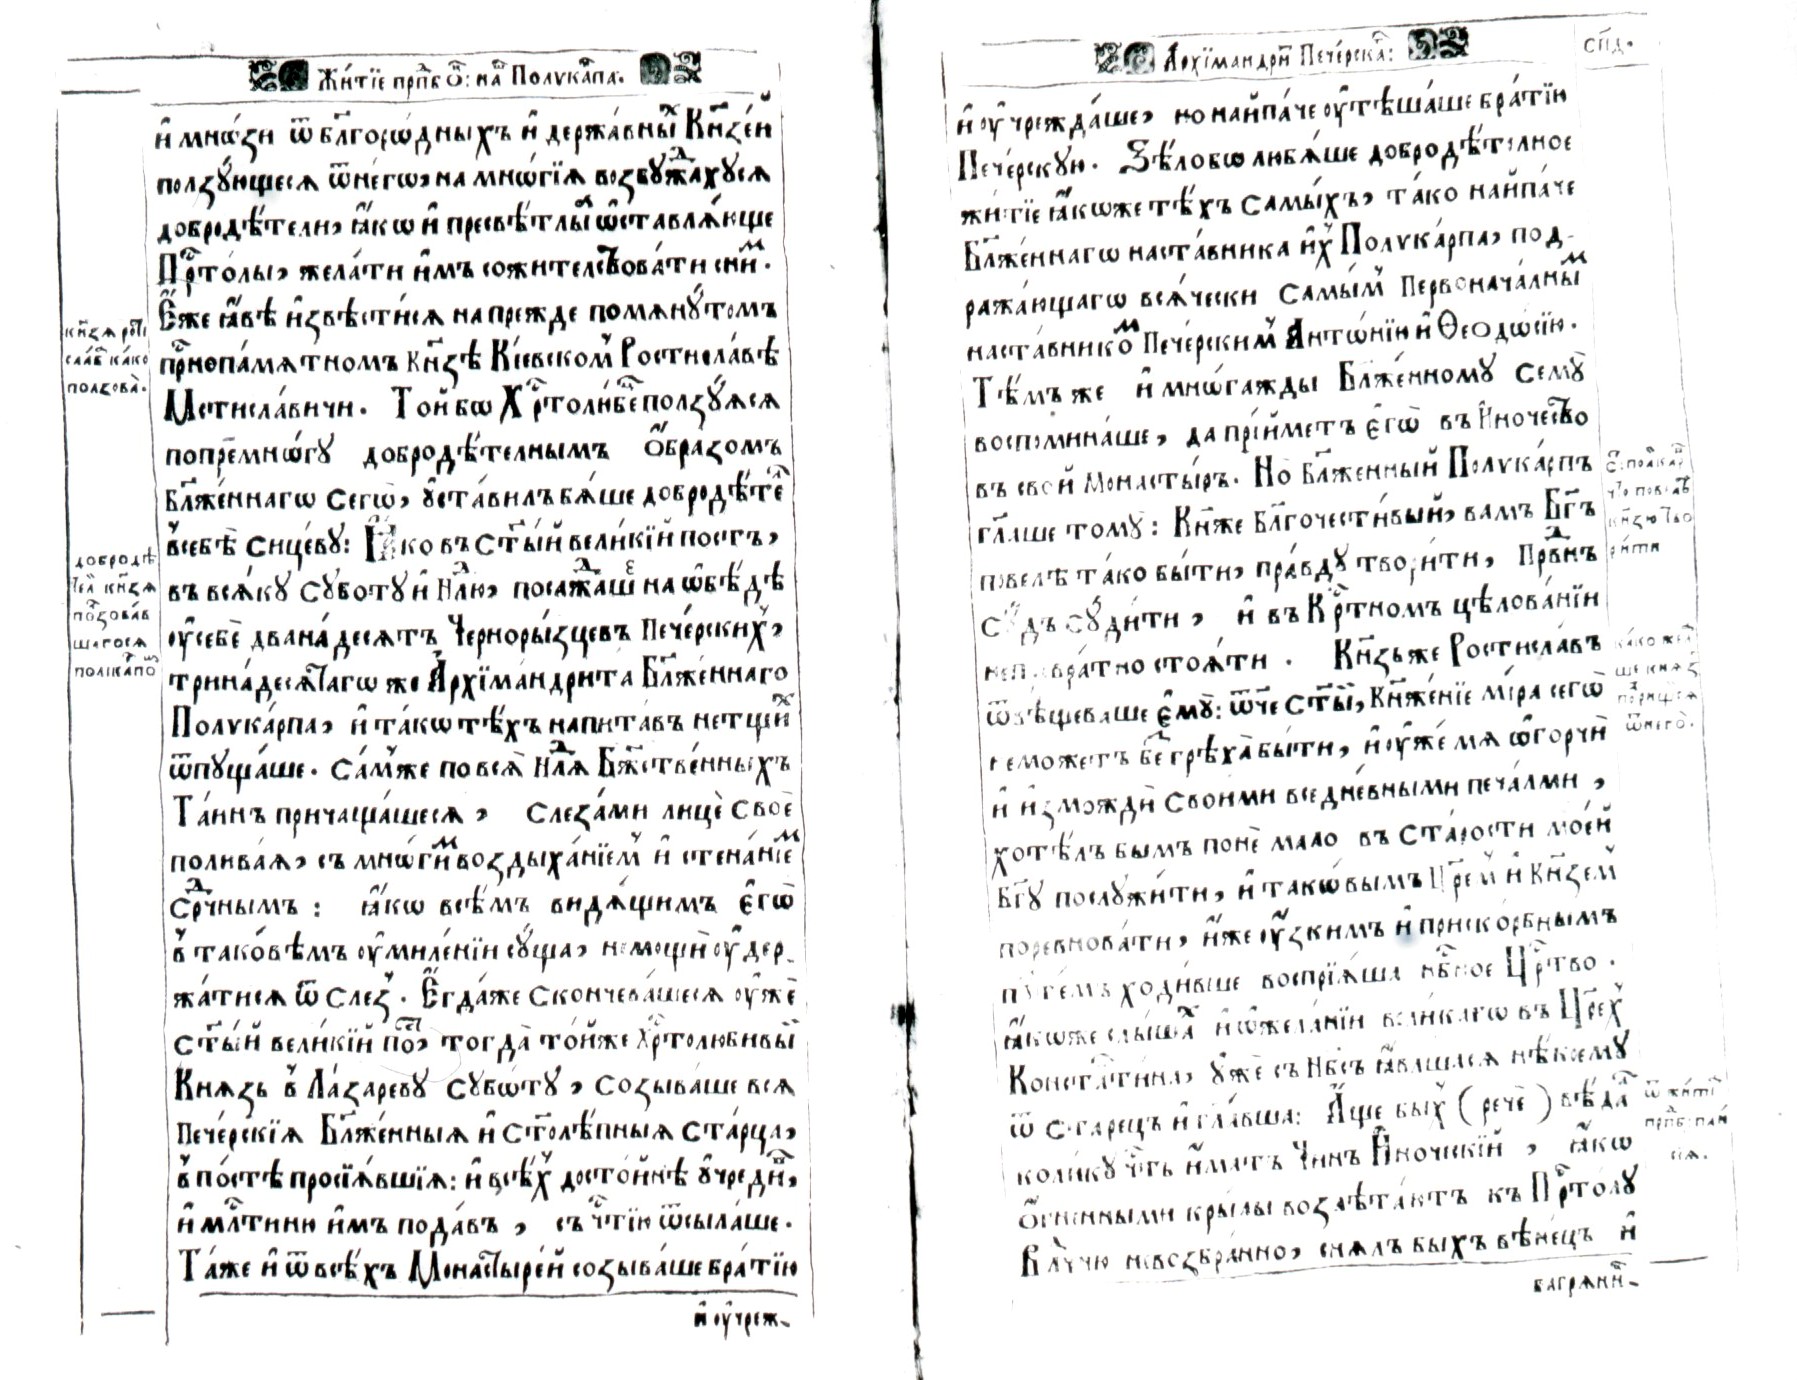 Жи́тїе прпⷣб Ѻ҃: на́ Полѹка́рпа.
и҆ мнѡ́зи ѿ бл҃горѡ́дныхъ и҆ держа́вныⷯ Кн҃зе́й
ползꙋ́ющеся ѿнегѡ̀, на мнѡ́гїѧ возвꙋжⷣа́хꙋсѧ
добродѣ́тели, ꙗ҆́кѡ и҆ пресвѣ́тлыѧ ѡ҆ставлѧ́юще
Прⷭ҇то́лы, жела́ти и҆̀мъ сожителствова́ти снимⷨ.
Е҆́же ꙗ҆́вѣ и҆звѣсти́сѧ на пре́жде помѧнꙋ́томъ
прⷭ҇нопа́мѧтномъ кн҃зѣ Кі́евскомъ Ростисла́вѣ
Мстисла́вичи. То́й бѡ Хрⷭ҇толю́бецъ по́лзꙋѧсѧ
попремнѡ́гꙋ добродѣ́телнымъ Ѻ҆́бразомъ
Бл҃же́ннагѡ сегѡ̀, ᲂу҆ста́вилъ бѧ́ше добродѣ́теⷧ
в̾себѣ̀ сицевꙋ́: Ꙗ҆́ко въ ст҃ы́й вели́кїй постъ,
въ всѧ́кꙋ сꙋбо́тꙋ и҆ нлⷣю, посаждⷣа́ше на ѡ҆бѣ́дѣ
ᲂу҆себѐ двана́десѧтъ Черноры́зцевъ Пече́рскихъ,
трина́десѧтагѡ же А҆рхїмандри́та Бл҃же́ннаго
Полѹка́рпа, и҆ та́кѡ тѣ́хъ напита́въ нетщиⷯ
ѿпꙋща́ше. Са́мже по всѧ̀ нлⷣѧ Бж҃стве́нныхъ
Та́инъ причаща́шесѧ, слеза́ми лицѐ своѐ
полива́ѧ, съ мнѡ́гимⷨ воздыха́нїемъ и҆ стена́нїеⷨ
срⷣчнымъ: ꙗ҆́кѡ всѣ́мъ ви́дѧщимъ е҆гѡ̀
в̾ тако́вѣмъ ᲂу҆миле́нїи сꙋ́ща, немощѝ ᲂу҆дер-
жа́тисѧ ѿ слезъ. Е҆гда́же скончева́шесѧ ᲂу҆жѐ
ст҃ы́й вели́кїй поⷭ҇, тогда̀ то́йже хрⷭ҇толюби́вый
Кнѧзь в̾ Ла́заревꙋ сꙋбѡ́тꙋ, созыва́ше всѧ
пече́рскїѧ Бл҃же́нныѧ и҆ ст҃олѣ́пныѧ ста́рца,
в̾ по́стѣ просїѧ́вшїѧ: и҆ всѣ́хъ досто́йнѣ ᲂу҆чредиⷡ,
и҆ млⷭ҇тиню и҆̀мъ пода́въ, съ чтⷭ҇їю ѿсыла́ше.
Та́же и҆ ѿ всѣ́хъ Монасты́рей созыва́ше бра́тїю
и҆ ᲂу҆чреж-
кн҃зѧ рости
сла́въ ка́ко
ползова̀.
добродѣ
тел кн҃зѧ
ползова́в
шагосѧ
А҆рхїмандри́т Пече́рска:
спд.
и҆ ᲂу҆чрежда́ше, но найпа́че ᲂу҆тѣша́ше бра́тїю
Пече́рскую. Ѕѣлобѡ любѧ́ше добродѣ́телное
жи́тїе ꙗ҆́коже тѣ́хъ самы́хъ, та́ко найпа́че
Бл҃же́ннагѡ наста́вника и҆́хъ Полѹка́рпа, под-
ража́ющагѡ всѧ́чески самы́мъ Первонача́лныⷨ
наста́вникоⷨ Пече́рскимъ А҆нтѡ́нїю и҆ Ѳеѻдѡ́сїю.
Тѣ́мъже и҆ мнѡ́гажды Бл҃же́нномꙋ семꙋ̀
воспомина́ше, да прїи́метъ е҆гѡ̀ въ И҆́ночество
въ сво́й монасты́ръ. Но̀ бл҃же́нный Полѹка́рпъ
гл҃аше томꙋ̀: Кн҃же бл҃гочести́вый, вамъ Бг҃ъ
повелѣ̀ та́ко бы́ти, пра́вдꙋ твори́ти, Првⷣнъ
сꙋ́дъ сꙋди́ти, и҆ въ Крⷭ҇тномъ цѣлова́нїи
непревра́тно стоѧ́ти. Кн҃зьже Ростисла́въ
ѿвѣщева́ше е҆мꙋ̀: ѿче ст҃ы́й, Кн҃же́нїе мі́ра сегѡ̀
неможетъ безⷥ грѣха̀ бы́ти, и҆ ᲂу҆же́ мѧ ѡ҆горчѝ
и҆ и҆змождѝ свои́ми вседне́вными печа́лми,
хотѣ́лъ бымъ понѐ мало въ ста́рости мое́й
Бг҃ꙋ послꙋжи́ти, и҆ такѡ́вымъ Цр҃емъ и҆ Кн҃земъ
поревнова́ти, и҆́же ᲂу҆́зкимъ и҆ приско́рбнымъ
пꙋте́мъ ходи́вше воспрїѧ́ша нбⷭ҇ное Црⷭ҇тво.
ꙗ҆́коже слы́шаⷯ и҆ ѡ҆жела́нїи вели́кагѡ въ Цр҃ехъ
Конста́нтина, ᲂу҆жѐ съ Нб҃съ ꙗ҆́влшасѧ нѣ́коемꙋ
ѿ ста́рецъ и҆ гл҃авша: А҆́ще быхъ (речѐ) вѣ́далъ
коли́кꙋ чтⷭ҇ь и҆́мать Чинъ И҆́ноческїй, ꙗ҆́кѡ
ѻ҆́гненными кры́лы возлѣта́ютъ къ Прⷭ҇то́лꙋ
Влⷣчню невозбра́нно, снѧлъ быхъ вѣне́цъ и҆
багрѧни-
ка́ко жел
ше кнѧз
ѿнего̀.
ѿ жи́тї
прпⷣб: паи
сїѧ.